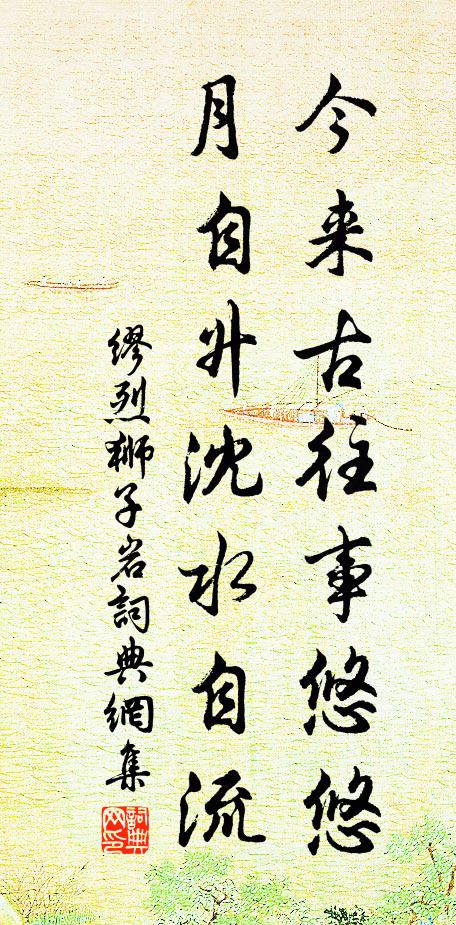 今来古往事悠悠
月自升沈水自流
缪烈狮子岩詞典網集
詞典網印